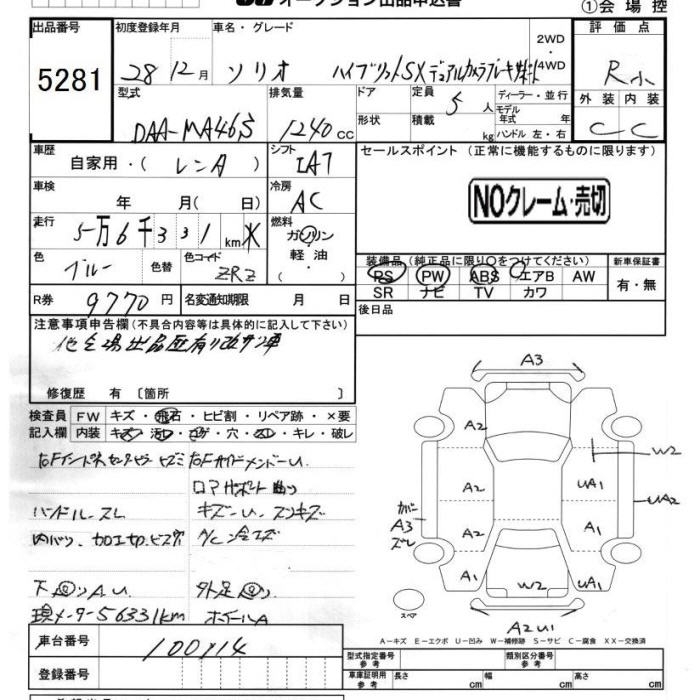 オークション出品申込書
①会場控
出品番号 初度登録年月 車名・グレード 評価点
5281
28 12月 ソリオ ハイブリッドSX デュアルカメラブレーキサポート 2WD・4WD R小
型式 排気量 ドア 定員 5人 ディーラー・並行 外装 内装
DAA-MA46S 1240cc 形状 積載 kg モデル年式 年 ハンドル 左・右 C C
車歴 自家用・(レンA) シフト IA7 セールスポイント (正常に機能するものに限ります)
車検 年 月( 日) 冷房 AC
NOクレーム・売切
走行 5万6千331km 燃料 ガソリン・軽油・
装備品(純正品に限り○をつけてください) 新車保証書
色 ブルー 色替 色コード ZRZ
PS PW ABS エアB AW 有・無
SR ナビ TV カワ
R券 9770円 名変通知期限 月 日
後日品
注意事項申告欄(不具合内容等は具体的に記入して下さい)
他会場出品歴有り
修復歴 有〔箇所 〕
検査員記入欄 FW キズ・飛石・ヒビ割・リペア跡・×要
内装 キズ・汚れ・コゲ・穴・スレ・キレ・破レ
ハンドルスレ キズ
内張り、加工切、ビス穴 A/C
下 A U
現メーター56331km ホイールA
車台番号 100714
登録番号
A3
A2 W2
A2 UA1 UA2
カバーA3ズレ
A2 A1
A1 W2 UA1
スペア
A2 U1
A−キズ E−エクボ U−凹み W−補修跡 S−サビ C−腐食 XX−交換済
型式指定番号 参考 類別区分番号 参考
車庫証明用 参考 長さ cm 幅 cm 高さ cm